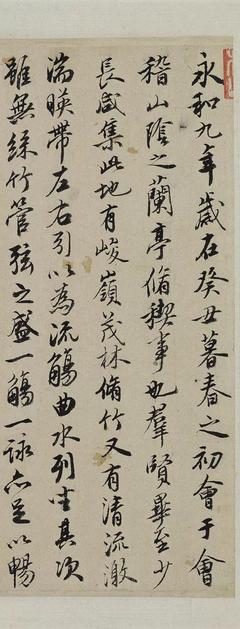 永和九年歲在癸丑暮春之初會于會
稽山陰之蘭亭脩稧事也羣賢畢至少
長咸集此地有峻嶺茂林脩竹又有清流激
湍暎帶左右引以為流觴曲水列坐其次
雖無絲竹管弦之盛一觴一詠亦足以暢